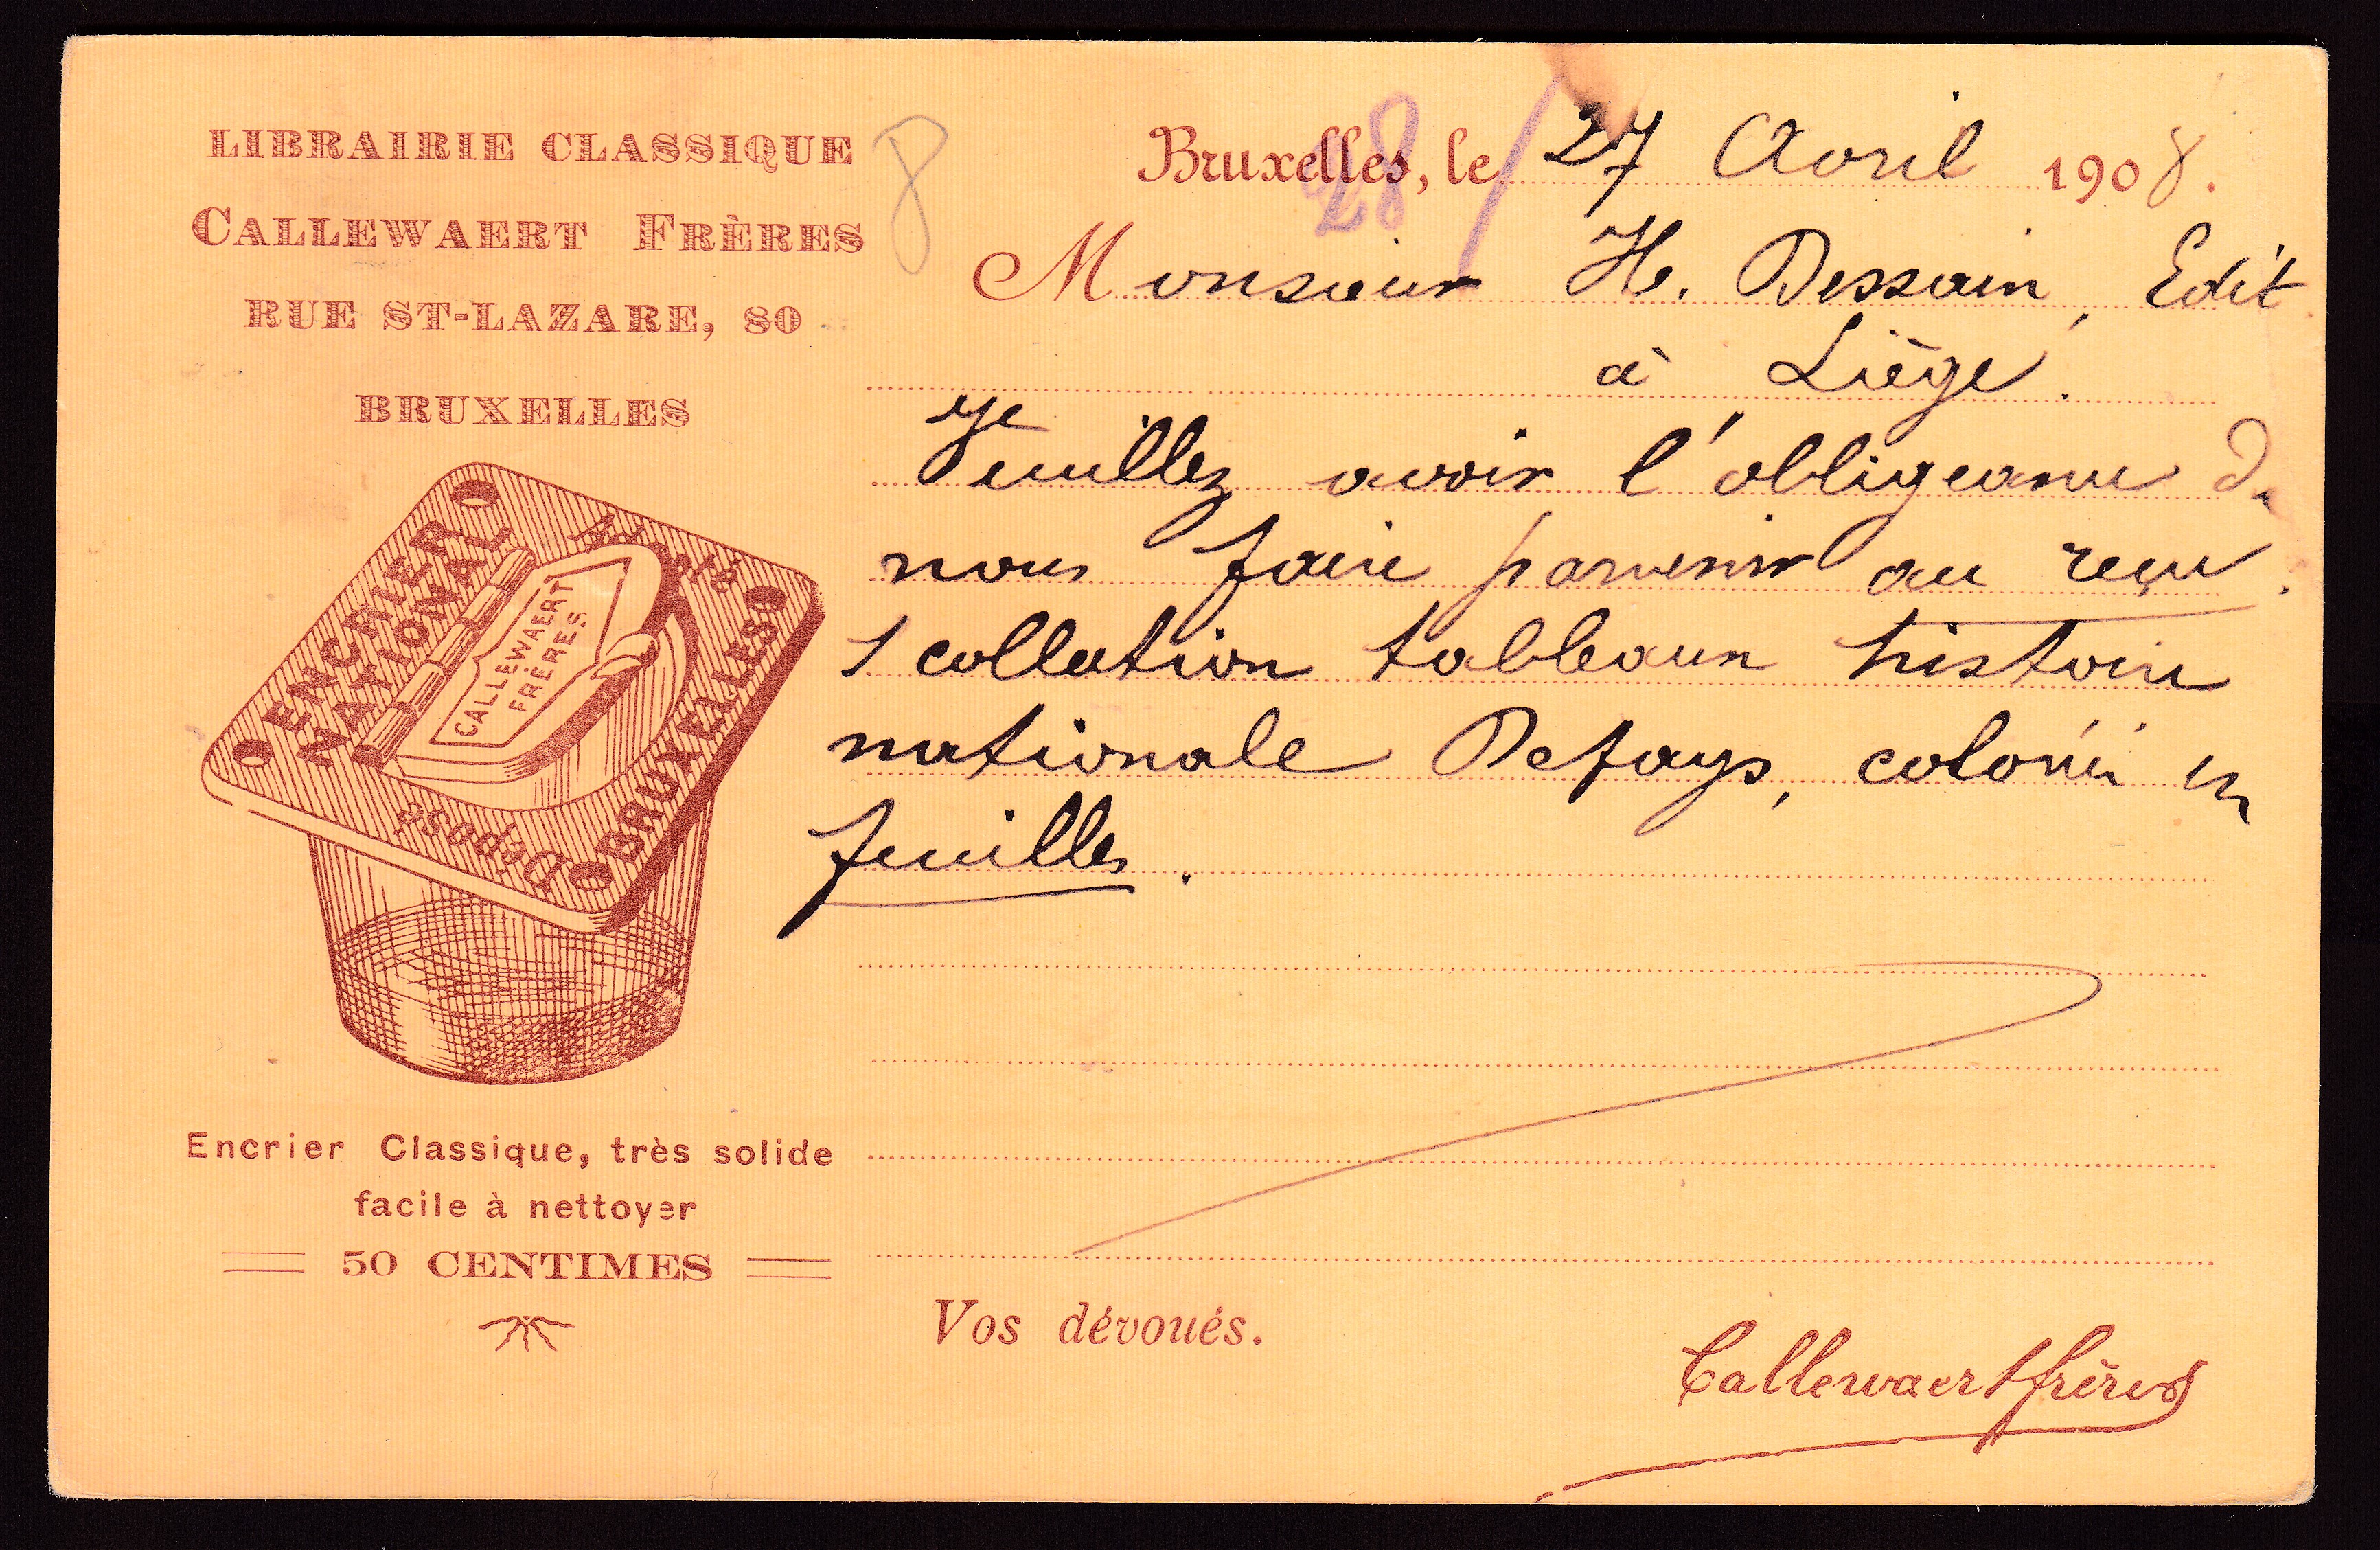 LIBRAIRIE CLASSIQUE
CALLEWAERT FRÈRES
RUE ST-LAZARE, 80
BRUXELLES
ENCRIER
NATIONAL
Adopté
CALLEWAERT
FRÈRES
BRUXELLES
Déposé
Encrier Classique, très solide
facile à nettoyer
50 CENTIMES
8
28/
Bruxelles, le 27 Avril 1908.
Monsieur H. Dessain, Edit
à Liège.
Veuillez avoir l'obligeance de
nous faire parvenir au reçu
1 collation tableaux histoire
nationale Defays, coloriés en
feuilles.
Vos dévoués.
Callewaert frères